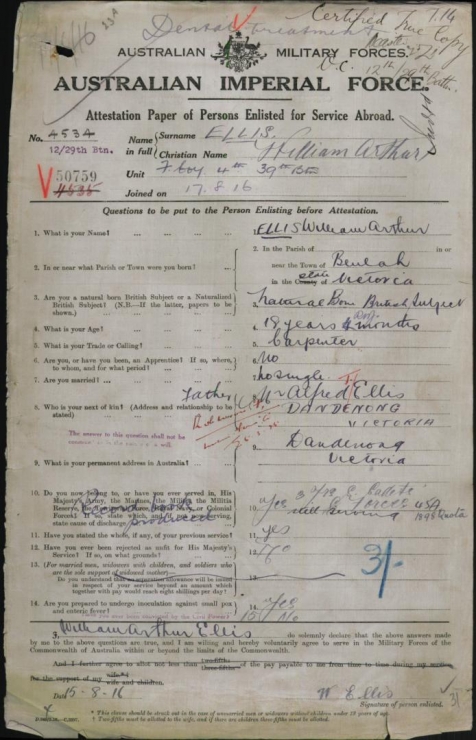 Dental Treatment
Certified True Copy
AUSTRALIAN MILITARY FORCES.
AUSTRALIAN IMPERIAL FORCE.
Attestation Paper of Persons Enlisted for Service Abroad.
No. 4534 Name in full Surname ELLIS.
12/29th Btn. Christian Name William Arthur
V 50759 Unit 4th 39th Btn
4535 Joined on 17.8.16
Questions to be put to the Person Enlisting before Attestation.
1. What is your Name? 1. ELLIS William Arthur
2. In or near what Parish or Town were you born? 2. In the Parish of in or
near the Town of Beulah
in the County of state Victoria
3. Are you a natural born British Subject or a Naturalized British Subject? (N.B.—If the latter, papers to be shown.) 3. Natural Born British Subject
4. What is your Age? 4. 18 years months
5. What is your Trade or Calling? 5. Carpenter
6. Are you, or have you been, an Apprentice? If so, where, to whom, and for what period? 6. No
7. Are you married? 7. No single
8. Who is your next of kin? (Address and relationship to be stated) Father 8. Mr Alfred Ellis
DANDENONG
VICTORIA
The answer to this question shall not be
9. What is your permanent address in Australia? 9. Dandenong
Victoria
10. Do you now belong to, or have you ever served in, His Majesty's Army, the Marines, the Militia, the Militia Reserve, the Territorial Reserve, Royal Navy, or Colonial Forces? If so, state which, and if not now serving, state cause of discharge 10. Yes
Record book produced
still serving 1898 Quota
11. Have you stated the whole, if any, of your previous service? 11. yes
12. Have you ever been rejected as unfit for His Majesty's Service? If so, on what grounds? 12. No
13. (For married men, widowers with children, and soldiers who are the sole support of widowed mother)—
Do you understand that no separation allowance will be issued in respect of your service beyond an amount which together with pay would reach eight shillings per day? 13.
3/-
14. Are you prepared to undergo inoculation against small pox and enteric fever? 14. Yes
15. No
I, William Arthur Ellis do solemnly declare that the above answers made
by me to the above questions are true, and I am willing and hereby voluntarily agree to serve in the Military Forces of the
Commonwealth of Australia within or beyond the limits of the Commonwealth.
And I further agree to allot not less than two-fifths three-fifths of the pay payable to me from time to time during my service
for the support of my wife wife and children.
Date 5-8-16 W Ellis
Signature of person enlisted.
* This clause should be struck out in the case of unmarried men or widowers without children under 18 years of age.
† Two-fifths must be allotted to the wife, and if there are children three-fifths must be allotted.